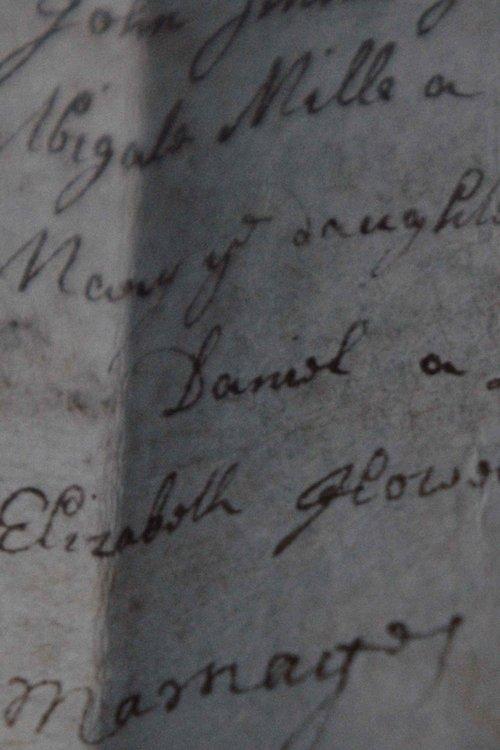 John
Abigale Mille a
Mary ye daught
Daniel a
Elizabeth Glower
Marriages